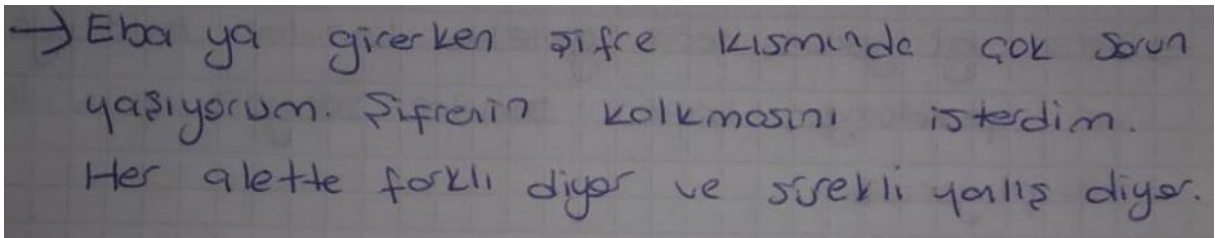 → Eba ya girerken şifre kısmında çok sorun
yaşıyorum. Şifrenin kalkmasını isterdim.
Her alette farklı diyor ve sürekli yanlış diyor.